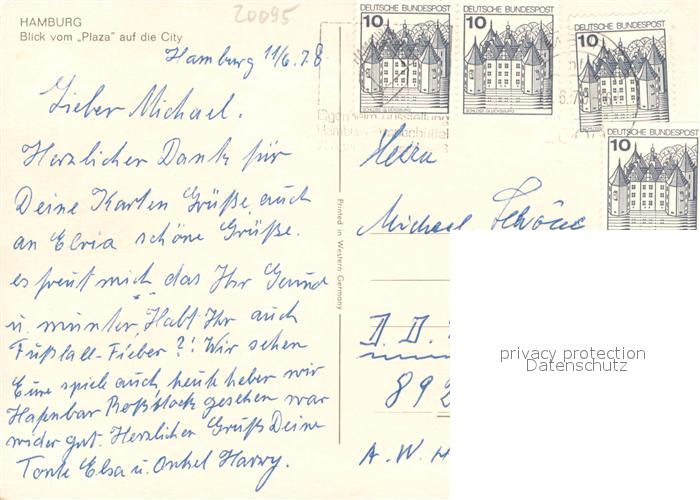 HAMBURG
Blick vom „Plaza" auf die City
20095
Hamburg 11/6.78
Lieber Michael.
Herzlicher Dank für
Deine Karten Grüße auch
an Elvia schöne Grüße.
es freut mich das Ihr Gesund
u. munter, Habt Ihr auch
Fußlall-Fieber?! Wir sehen
Eure spiele auch, heute haben wir
gesehen war
wider gut. Herzlicher Gruß Deine
Tante Elsa u. Onkel Harry.
Printed in Western Germany
DEUTSCHE BUNDESPOST
10
SCHLOSS GLÜCKSBURG
DEUTSCHE BUNDESPOST
10
SCHLOSS GLÜCKSBURG
DEUTSCHE BUNDESPOST
10
DEUTSCHE BUNDESPOST
10
Herrn
Michael Schöne
D. D.
892
A. W. H
privacy protection
Datenschutz